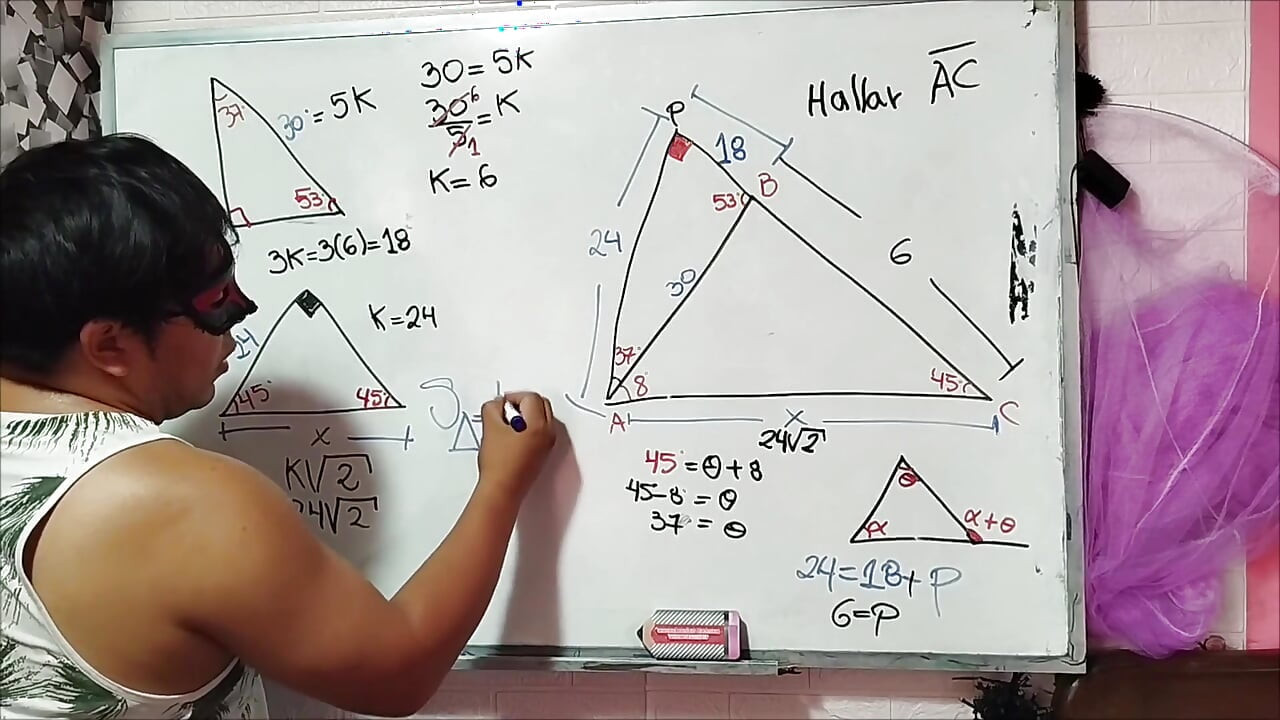 37°
30° = 5K
53°
3K=3(6)=18
30 = 5K
30 6
5 1
= K
K= 6
45°
45°
K=24
x
K√2
24√2
S
Δ=
Hallar AC
P
18
B
53°
24
30
6
37°
8°
45°
A
x
24√2
C
45°=θ+8
45-8°=θ
37°=θ
θ
α
α+θ
24=18+P
6=P